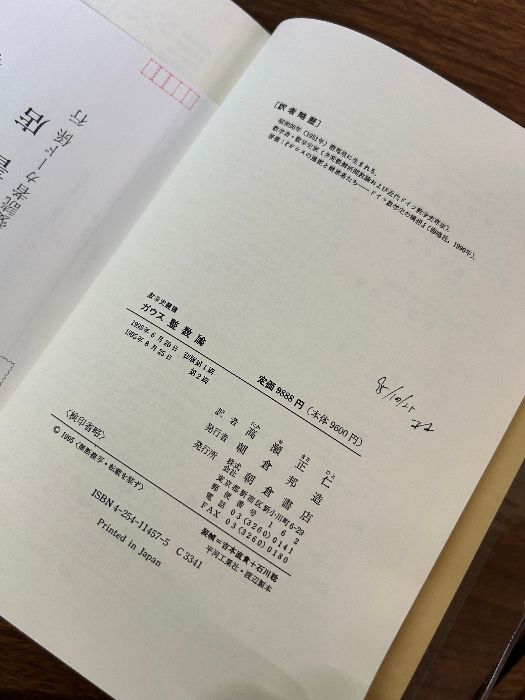 [訳者略歴]
昭和26年(1951年)群馬県に生まれる.
数学者・数学史家(多変数解析関数論および近代ドイツ数学史専攻).
著書:『ガウスの遺産と継承者たち——ドイツ数学史の構想』(海鳴社, 1990年).
数学史叢書
ガウス 整数論
1995年6月20日 初版第1刷
1995年8月25日 第2刷
定価9888円(本体9600円)
訳者 高瀬正仁
たか せ まさ ひと
発行者 朝倉邦造
発行所 株式会社 朝倉書店
東京都新宿区新小川町6-29
郵便番号 162
電話 03(3260)0141
FAX 03(3260)0180
〈検印省略〉
© 1995〈無断複写・転載を禁ず〉
装幀=吉本直貴+石川稔
平河工業社・渡辺製本
ISBN4-254-11457-5 C3341
Printed in Japan
愛読者カード係 行
店